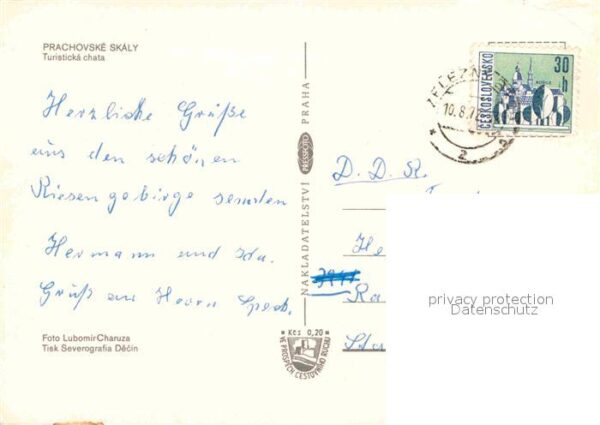 PRACHOVSKÉ SKÁLY
Turistická chata
Herzliche Grüße
aus den schönen
Riesengebirge senden
Hermann und Ida.
Gruß an Herrn
Foto Lubomír Charuza
Tisk Severografia Děčín
NAKLADATELSTVÍ PRESSFOTO PRAHA
Kčs 0,20
VE PROSPĚCH CESTOVNÍHO RUCHU
ČESKOSLOVENSKO
30 h
10.8.7
2
D. D. R.
He
Ra
privacy protection
Datenschutz